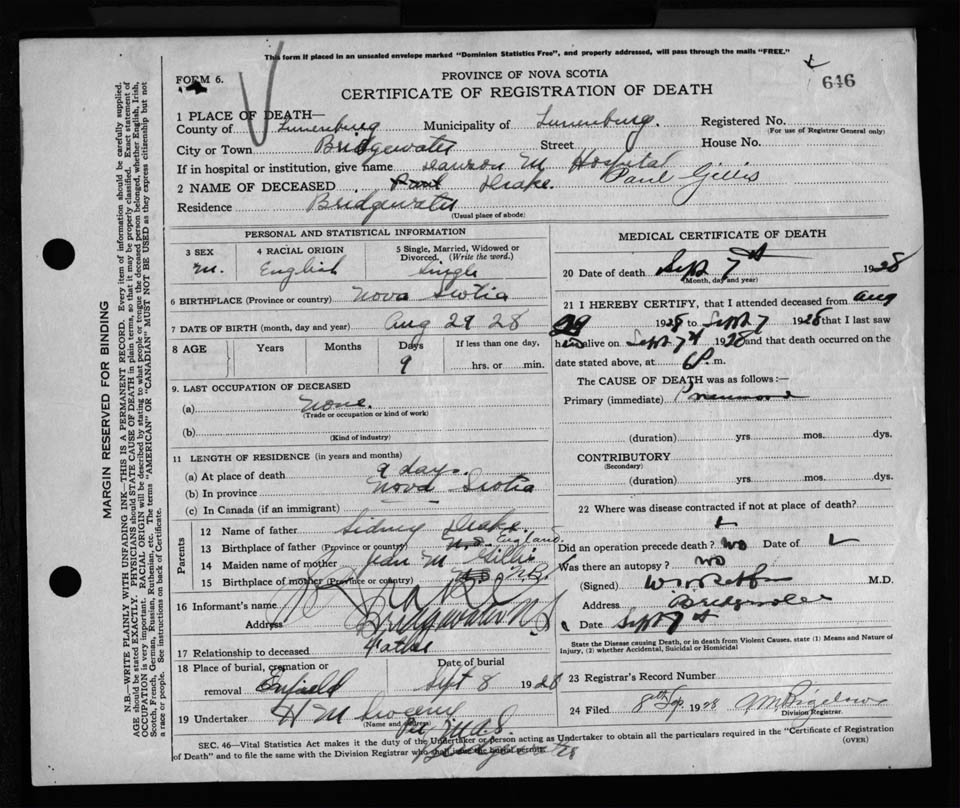 This form if placed in an unsealed envelope marked "Dominion Statistics Free", and properly addressed, will pass through the mails "FREE."
FORM 6.
PROVINCE OF NOVA SCOTIA
646
CERTIFICATE OF REGISTRATION OF DEATH
1 PLACE OF DEATH—
County of Lunenburg Municipality of Lunenburg. Registered No.
(For use of Registrar General only)
City or Town Bridgewater Street House No.
If in hospital or institution, give name Dawson M Hospital
2 NAME OF DECEASED Drake. Paul Gillis
Residence Bridgewater
(Usual place of abode)
PERSONAL AND STATISTICAL INFORMATION
3 SEX 4 RACIAL ORIGIN 5 Single, Married, Widowed or Divorced. (Write the word.)
M. English Single
6 BIRTHPLACE (Province or country) Nova Scotia
7 DATE OF BIRTH (month, day and year) Aug 29 28
8 AGE Years Months Days If less than one day,
9 hrs. or min.
9. LAST OCCUPATION OF DECEASED
(a) None.
(Trade or occupation or kind of work)
(b)
(Kind of industry)
11 LENGTH OF RESIDENCE (in years and months)
(a) At place of death 9 days.
(b) In province Nova Scotia
(c) In Canada (if an immigrant)
Parents
12 Name of father Sidney Drake.
13 Birthplace of father (Province or country) N.S. England.
14 Maiden name of mother M Gillis
15 Birthplace of mother (Province or country) N.B.
16 Informant's name Drake
Address Bridgewater N S
17 Relationship to deceased Father
18 Place of burial, cremation or Date of burial
removal Enfield Sept 8 1928
19 Undertaker H M
(Name and address)
MEDICAL CERTIFICATE OF DEATH
20 Date of death Sept 7 1928
(Month, day and year)
21 I HEREBY CERTIFY, that I attended deceased from Aug
29 1928 to Sept 7 1928 that I last saw
him alive on Sept 7 1928 and that death occurred on the
date stated above, at 6 P. m.
The CAUSE OF DEATH was as follows:—
Primary (immediate) Pneumonia
(duration) yrs. mos. dys.
CONTRIBUTORY
(Secondary)
(duration) yrs. mos. dys.
22 Where was disease contracted if not at place of death?
Did an operation precede death? No Date of
Was there an autopsy? No
(Signed) M.D.
Address Bridgewater
Date Sept 7
State the Disease causing Death, or in death from Violent Causes, state (1) Means and Nature of
Injury, (2) whether Accidental, Suicidal or Homicidal
23 Registrar's Record Number
24 Filed 8th Sep. 1928 A M Bigelow
Division Registrar.
SEC. 46—Vital Statistics Act makes it the duty of the Undertaker or person acting as Undertaker to obtain all the particulars required in the "Certificate of Registration
of Death" and to file the same with the Division Registrar who shall issue the burial permit.
(OVER)
MARGIN RESERVED FOR BINDING
N.B.—WRITE PLAINLY WITH UNFADING INK—THIS IS A PERMANENT RECORD. Every item of information should be carefully supplied.
AGE should be stated EXACTLY. PHYSICIANS should STATE CAUSE OF DEATH in plain terms, so that it may be properly classified. Exact statement of
OCCUPATION is very important. RACIAL ORIGIN will be described by stating to what people or tongue the deceased person belonged, whether English, Irish,
Scotch, French, German, Russian, Ruthenian, etc. The terms "AMERICAN" OR "CANADIAN" MUST NOT BE USED as they express citizenship but not
a race or people. See instructions on back of Certificate.